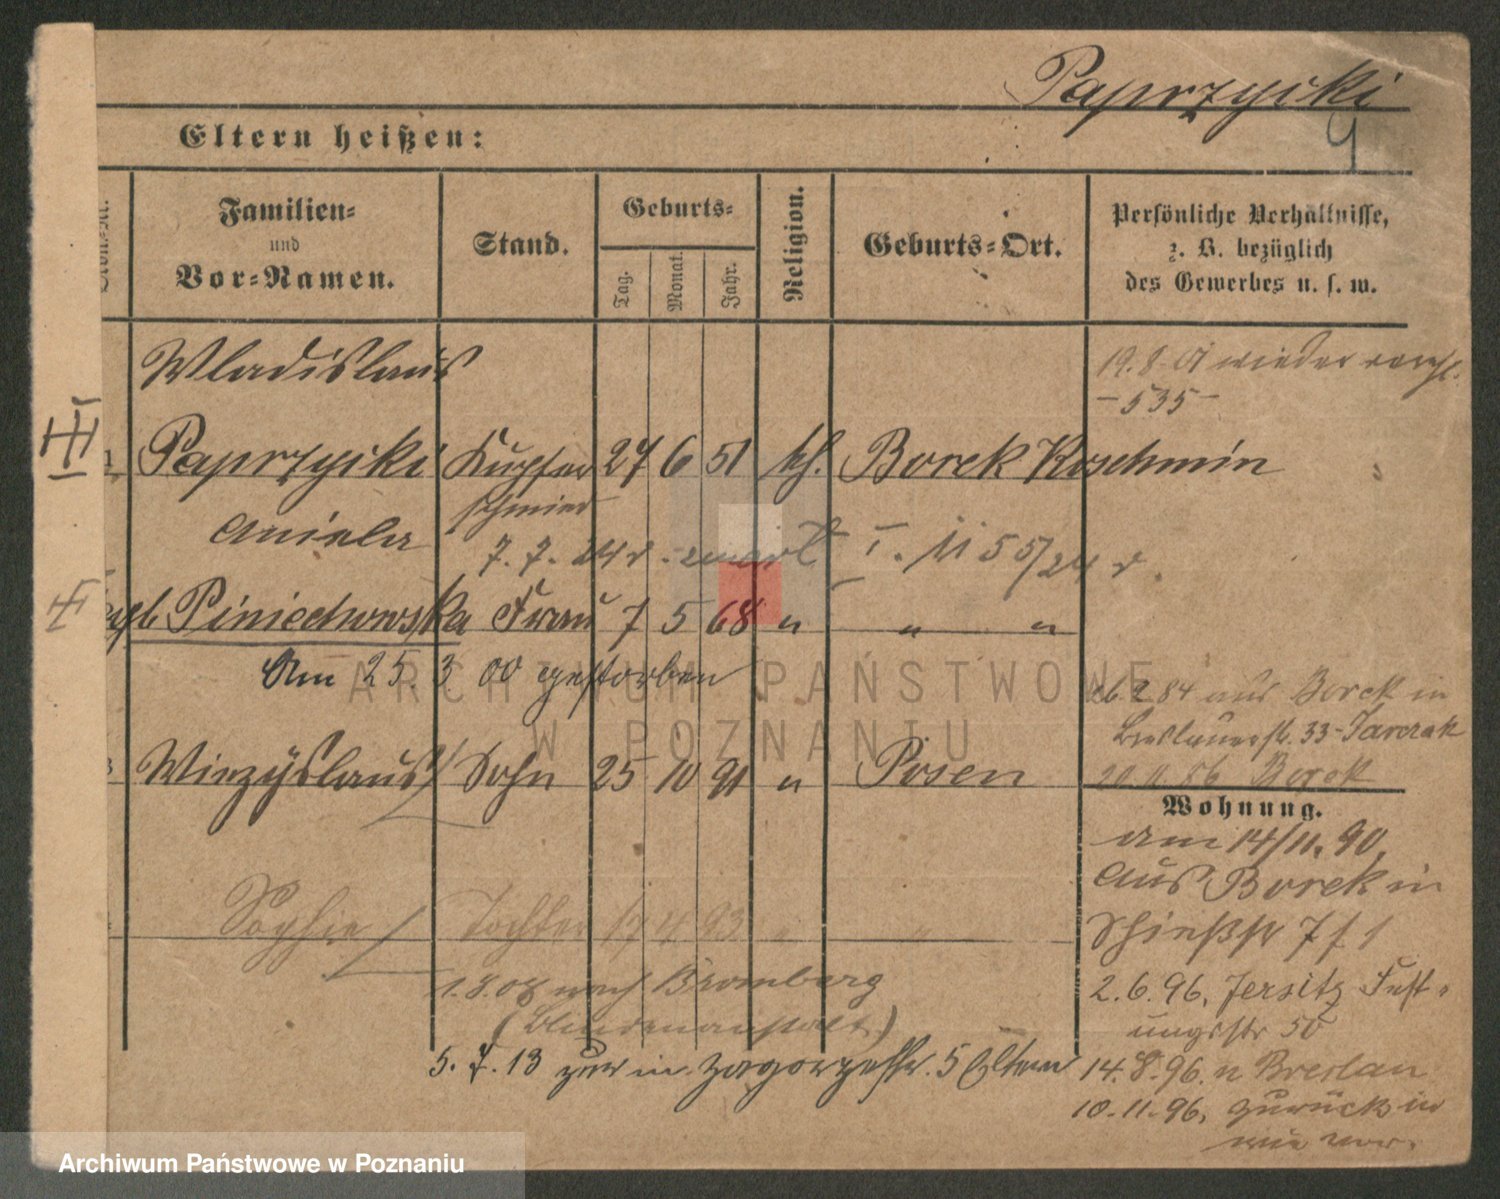 Paprzycki
9
Eltern heißen:
Familien- und Vor-Namen.
Stand.
Geburts-
Tag.
Monat.
Jahr.
Religion.
Geburts-Ort.
Persönliche Verhältnisse, z. B. bezüglich des Gewerbes u. s. w.
Wladislaus
19.8. wieder
- 535 -
III
Paprzycki Kupfer 27 6 51 kh. Borek Koschmin
schmied
Aniela
7. 7. I. 11 55/24
Piniechowska Frau 7 5 68 " " "
Am 25. 3 00 gestorben
26 2 84 aus Borek in
Breslauerstr. 33 - Jarczak
Wiezÿslaus Sohn 25 10 91 " Posen
20 11. 86 Borek
Wohnung.
am 14/11. 90
aus Borek in
Schießstr 7
Sophie Tochter 93 " "
1.8.08 nach Bromberg
(Blindenanstalt)
2.6.96, Jersitz Fest-
ungsstr 50
5. 7. 13 zur in Zagorzestr. 5 Eltern
14.8.96. n Breslau
10.11.96, zurück in
wie vor.
ARCHIWUM PAŃSTWOWE
W POZNANIU
Archiwum Państwowe w Poznaniu